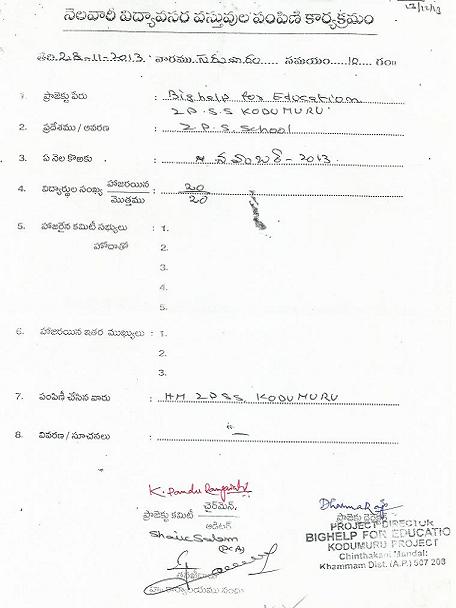 12/12/13
నెలవారీ విద్యావసర వస్తువుల పంపిణి కార్యక్రమం
తేది.28-11-2013 వారము.గురువారం.... సమయం....10.... గం॥
1. ప్రాజెక్టు పేరు : Bighelp for Education
ZP.S.S KODUMURU
2. ప్రదేశము / ఆవరణ : Z.P.S. School
3. ఏ నెల కొఱకు : నవంబర్ - 2013.
4. విద్యార్థుల సంఖ్య హాజరయిన / మొత్తము : 20 / 20
5. హాజరైన కమిటీ సభ్యులు : 1.
హోదాతో 2.
3.
4.
5.
6. హాజరయిన ఇతర ముఖ్యులు : 1.
2.
3.
7. పంపిణీ చేసిన వారు : HM ZPSS, KODUMURU
8. వివరణ / సూచనలు :
K. Pandu Rangaiah
ప్రాజెక్టు కమిటీ చైర్మెన్,
ఆడిటర్
Shaik Salam
(PCA)
DharmaRaj
ప్రాజెక్టు డైరెక్టర్
PROJECT DIRECTOR
BIGHELP FOR EDUCATIO
KODUMURU PROJECT
Chinthakani Mandal:
Khammam Dist. (A.P.) 507 208